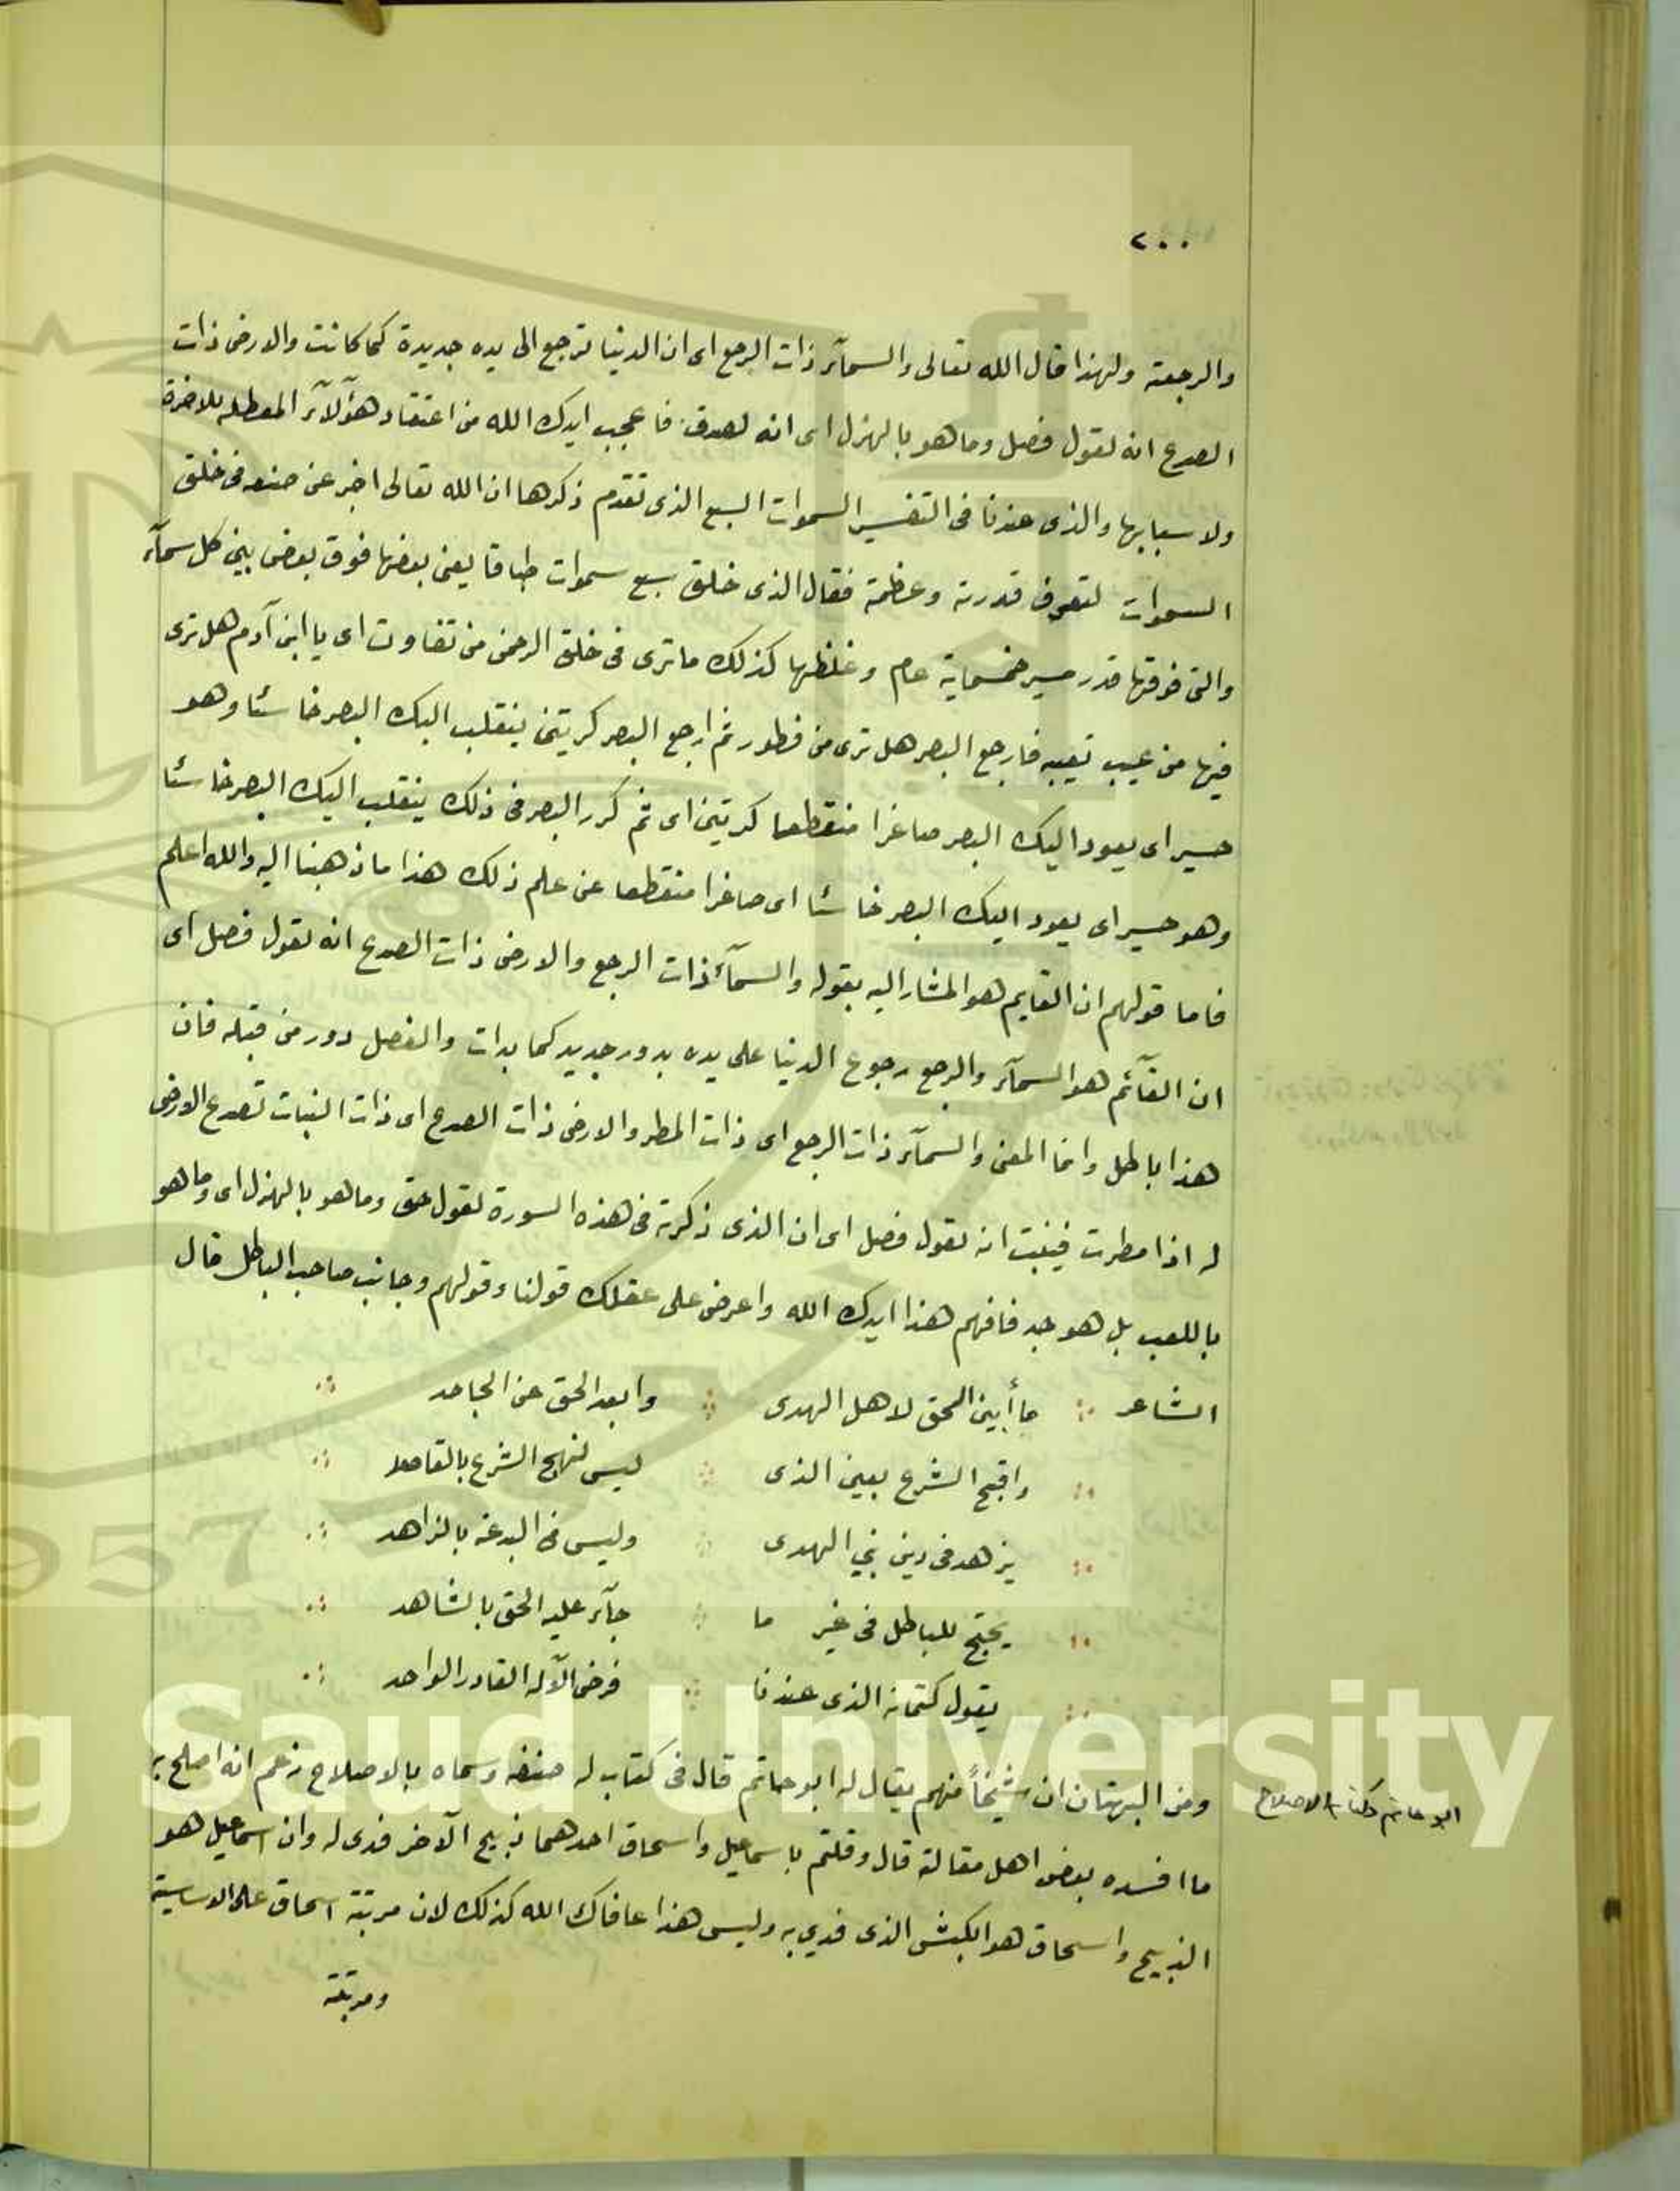 ٢٠٠
والرجعة ولهذا قال الله تعالى والسمآء ذات الرجع اى ان الدنيا ترجع الى يده جديدة كما كانت والارض ذات
الصدع انه لقول فصل وما هو بالهزل اى انه لصدق فاعجب ايدك الله من اعتقاد هؤلآء المعطله للاخرة
ولاسبابها والذى عندنا فى التفسير السموات السبع الذى تقدم ذكرها ان الله تعالى اخبر عن صنعه فى خلق
السموات لتعرف قدرته وعظمة فقال الذى خلق سبع سموات طباقا يعنى بعضها فوق بعض بين كل سمآء
والتى فوقها قدر مسير خمسماية عام وغلظها كذلك ما ترى فى خلق الرحمن من تفاوت اى يا ابن آدم هل ترى
فيها من عيب تعيبه فارجع البصر هل ترى من فطور ثم ارجع البصر كريتين ينقلب اليك البصر خاسئا وهو
حسير اى يعود اليك البصر صاغرا منقطعا كريتين اى ثم كرر البصر فى ذلك ينقلب اليك البصر خاسئا
وهو حسير اى يعود اليك البصر خاسئا اى صاغرا منقطعا عن علم ذلك هذا ما ذهبنا اليه والله اعلم
فاما قولهم ان القايم هو المشار اليه بقوله والسمآء ذات الرجع والارض ذات الصدع انه لقول فصل اى
ان القآئم هو السمآء والرجع رجوع الدنيا على يده بدور جديد كما بدات والفصل دور من قبله فان
هذا باطل وانما المعنى والسمآء ذات الرجع اى ذات المطر والارض ذات الصدع اى ذات النبات تصدع الارض
له اذا مطرت فينبت انه لقول فصل اى ان الذى ذكرته فى هذه السورة لقول حق وما هو بالهزل اى وما هو
باللعب بل هو جد فافهم هذا ايدك الله واعرض على عقلك قولنا وقولهم وجانب صاحب الباطل قال
الشاعر ما أبين الحق لاهل الهدى وابعد الحق عن الجاحد
واقبح الشرع بعين الذى ليس لنهج الشرع بالقاصد
يزهد فى دين نبي الهدى وليس فى البدعة بالزاهد
يحتج للباطل فى غير ما جآء عليه الحق بالشاهد
يقول كتمانه الذى عندنا فرض الآله القادر الواحد
ومن البهتان ان شيخاً منهم يقال له ابو حاتم قال فى كتاب له صنفه وسماه بالاصلاح زعم انه اصلح به
ابو حاتم وكتاب الاصلاح
ما افسده بعض اهل مقالة قال وقلتم باسماعيل واسحاق احدهما ذبيح الآخر فدى له وان اسماعيل هو
الذبيح واسحاق هو الكبش الذى فدي به وليس هذا عافاك الله كذلك لان مرتبة اسحاق على الاساسية
ومرتبة